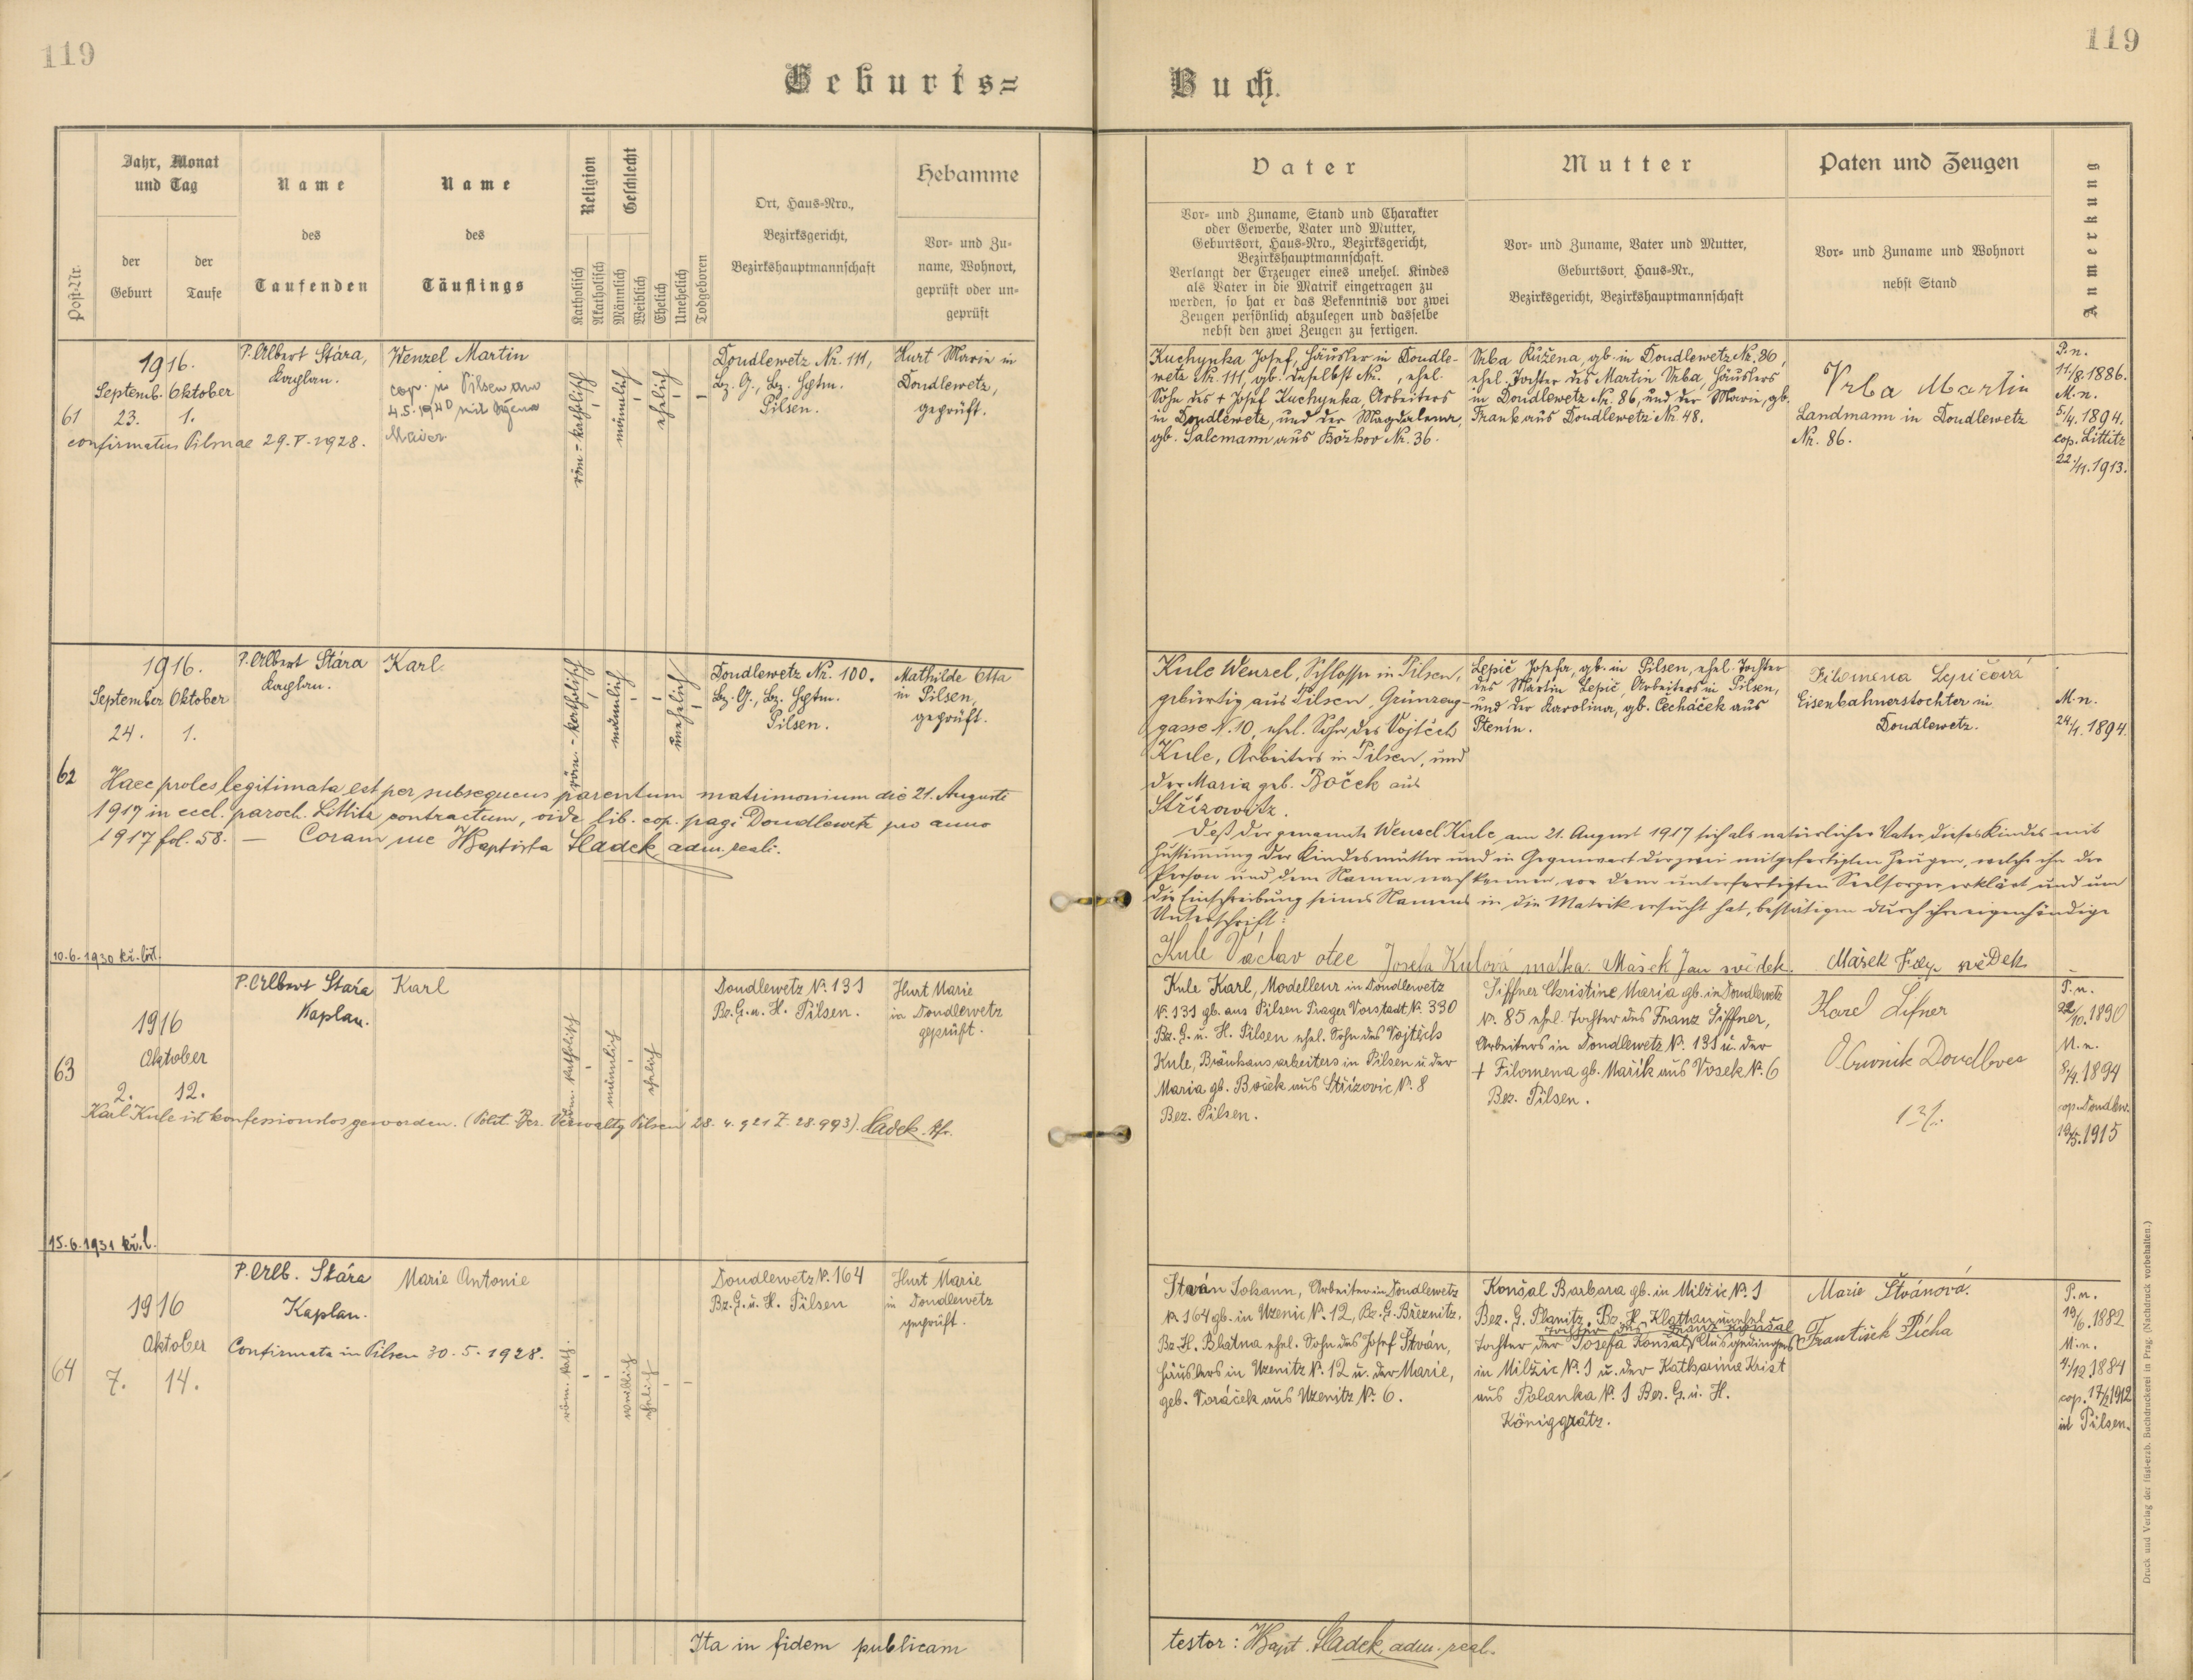 119
119
Geburts=
Buch.
Post-Nr.
Jahr, Monat
und Tag
der
Geburt
der
Taufe
Name
des
Taufenden
Name
des
Täuflings
Religion
Katholisch
Akatholisch
Geschlecht
Männlich
Weiblich
Ehelich
Unehelich
Todgeboren
Ort, Haus-Nro.,
Bezirksgericht,
Bezirkshauptmannschaft
Hebamme
Vor- und Zu-
name, Wohnort,
geprüft oder un-
geprüft
Vater
Vor- und Zuname, Stand und Charakter
oder Gewerbe, Vater und Mutter,
Geburtsort, Haus-Nro., Bezirksgericht,
Bezirkshauptmannschaft.
Verlangt der Erzeuger eines unehel. Kindes
als Vater in die Matrik eingetragen zu
werden, so hat er das Bekenntnis vor zwei
Zeugen persönlich abzulegen und dasselbe
nebst den zwei Zeugen zu fertigen.
Mutter
Vor- und Zuname, Vater und Mutter,
Geburtsort, Haus-Nr.,
Bezirksgericht, Bezirkshauptmannschaft
Paten und Zeugen
Vor- und Zuname und Wohnort
nebst Stand
Anmerkung
61
1916.
Septemb. Oktober
23. 1.
confirmatus Pilsnae 29.V.1928.
P. Albert Stára,
Kaplan.
Wenzel Martin
cop. in Pilsen am
4.5.1940 mit
Maier
röm-katholisch
männlich
ehelich
Doudlewetz Nr. 111,
Bz. G., Bz. Hptm.
Pilsen.
Hurt Marie in
Doudlewetz,
geprüft.
Kuchynka Josef, Häusler in Doudle-
wetz Nr. 111, gb. daselbst Nr. , ehel.
Sohn des + Josef Kuchynka, Arbeiters
in Doudlewetz, und der Magdalena,
gb. Salcmann aus Božkov Nr. 36.
Vrba Růžena, gb. in Doudlewetz Nr. 36,
ehel. Tochter des Martin Vrba, Häuslers
in Doudlewetz Nr. 86, und der Marie, gb.
Frank aus Doudlewetz Nr. 48.
Vrba Martin
Landmann in Doudlewetz
Nr. 86.
P.n.
11/8.1886.
M.n.
5/4.1894.
cop. Littitz
22./11.1913.
62
1916.
September Oktober
24. 1.
P. Albert Stára
Kaplan.
Karl
röm.-katholisch
männlich
unehelich
Doudlewetz Nr. 100.
Bz. G., Bz. Hptm.
Pilsen.
Mathilde Otta
in Pilsen,
geprüft.
Haec proles legitimata est per subsequens parentum matrimonium die 21. Augusti
1917 in eccl. paroch. Littitz contractum, vide lib. cop. pagi Doudlewetz pro anno
1917 fol. 58. — Coram me Baptista Sladek, adm. reali.
10.6.1930 kř. list.
Kule Wenzel, Schlosser in Pilsen,
gebürtig aus Pilsen, Grünzeug-
gasse N. 10, ehel. Sohn des Vojtěch
Kule, Arbeiters in Pilsen, und
der Maria geb. Boček aus
Střížowitz.
Lepič Josefa, gb. in Pilsen, ehel. Tochter
des Martin Lepič, Arbeiters in Pilsen,
und der Karolina, gb. Čecháček aus
Ptenín.
Filomena Lepičová
Eisenbahnerstochter in
Doudlewetz.
M.n.
24/1.1894.
Daß der genannte Wenzel Kule am 21. August 1917 sich als natürlicher Vater dieses Kindes mit
Zustimmung der Kindesmutter und in Gegenwart der zwei mitgefertigten Zeugen, welche ihn der
Person und dem Namen nach kennen, vor dem unterfertigten Seelsorger erklärt und um
die Einschreibung seines Namens in die Matrik ersucht hat, bestätigen durch ihre eigenhändige
Unterschrift:
Kule Václav otec Josefa Kulová matka. Mašek Jan svědek. Mašek svědek
63
1916
Oktober
2. 12.
P. Albert Stára
Kaplan.
Karl
röm. katholisch
männlich
ehelich
Doudlewetz N. 131
Bz. G. u. H. Pilsen.
Hurt Marie
in Doudlewetz
geprüft.
Karl Kule ist konfessionslos geworden. (Polit. Bez. Verwaltg Pilsen 28. 4. 921 Z. 28.993). Sladek Pfr.
15.6.1931 kř.l.
Kule Karl, Modelleur in Doudlewetz
N. 131 gb. aus Pilsen Prager Vorstadt N. 330
Bz. G. u. H. Pilsen ehel. Sohn des Vojtěch
Kule, Bräuhausarbeiters in Pilsen u der
Maria gb. Boček aus Střížovic N. 8
Bez. Pilsen.
Siffner Christine Maria gb. in Doudlewetz
N. 85 ehel. Tochter des Franz Siffner,
Arbeiters in Doudlewetz N. 131 u. der
+ Filomena gb. Mařík aus Vosek N. 6
Bez. Pilsen.
Karel Sifner
Doudlevec
131.
P.n.
22/10.1890
M.n.
8/4.1894
cop. Doudlew.
1915
64
1916
Oktober
7. 14.
P. Alb. Stára
Kaplan.
Marie Antonie
Confirmata in Pilsen 30.5.1928.
röm. kath.
weiblich
ehelich
Doudlewetz N. 164
Bz. G. u. H. Pilsen
Hurt Marie
in Doudlewetz
geprüft.
Štván Johann, Arbeiter in Doudlewetz
N. 164 gb. in Uzenic N. 12, Bz. G. Březnitz,
Bz. H. Blatna ehel. Sohn des Josef Štván,
Häuslers in Uzenitz N. 12 u. der Marie,
geb. Voráček aus Uzenitz N. 6.
Konšal Barbara gb. in Milžic N. 1
Bez. G. Planitz, Bz. H. Klattau unehel.
Tochter der Josefa Konšal, Ausgedingers
in Milžic N. 1 u. der Katharina Krist
aus Polanka N. 1 Bez. G. u. H.
Königgrätz.
Marie Štvánová.
František Pícha
P.n.
19/6.1882
M.n.
4./12.1884
cop. 1912
in Pilsen.
Ita in fidem publicam
testor: Bapt. Sladek, adm. real.
Druck und Verlag der fürst-erzb. Buchdruckerei in Prag. (Nachdruck vorbehalten.)